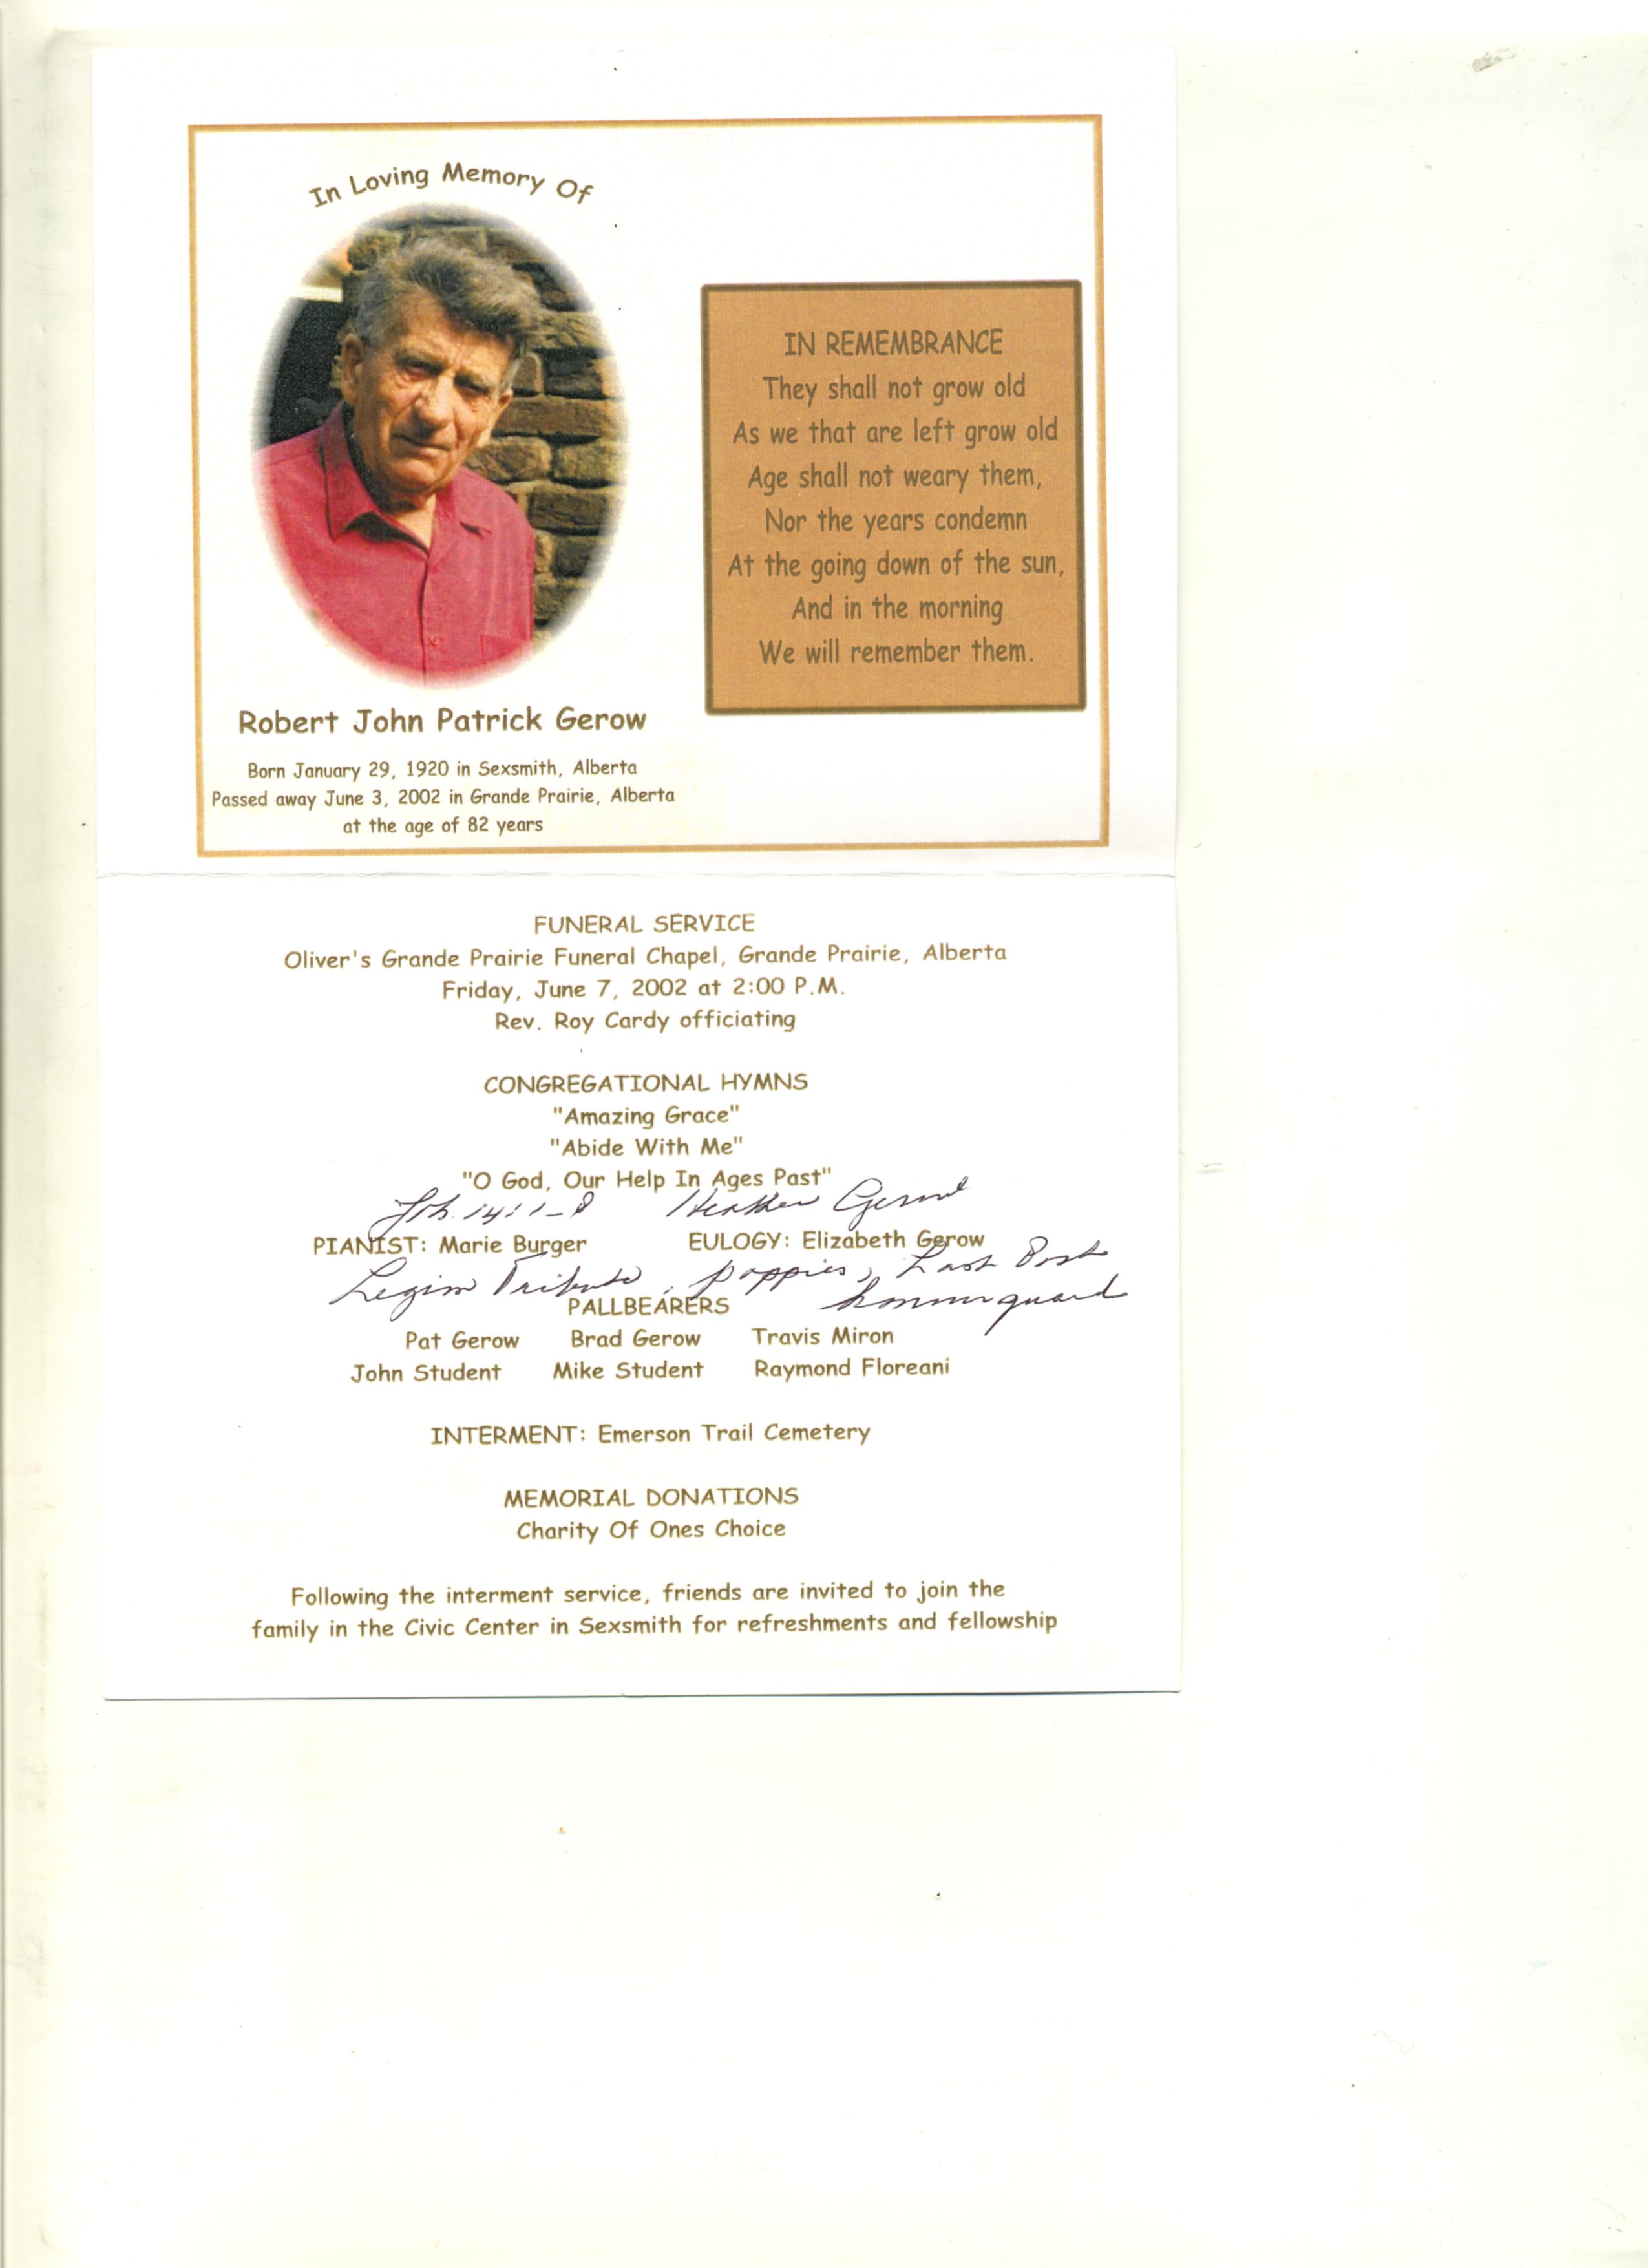 In Loving Memory Of
Robert John Patrick Gerow
Born January 29, 1920 in Sexsmith, Alberta
Passed away June 3, 2002 in Grande Prairie, Alberta
at the age of 82 years
IN REMEMBRANCE
They shall not grow old
As we that are left grow old
Age shall not weary them,
Nor the years condemn
At the going down of the sun,
And in the morning
We will remember them.
FUNERAL SERVICE
Oliver's Grande Prairie Funeral Chapel, Grande Prairie, Alberta
Friday, June 7, 2002 at 2:00 P.M.
Rev. Roy Cardy officiating
CONGREGATIONAL HYMNS
"Amazing Grace"
"Abide With Me"
"O God, Our Help In Ages Past"
14:1-8 Heather Gerow
PIANIST: Marie Burger EULOGY: Elizabeth Gerow
Legion Tribute, poppies, Last Post
honour guard
PALLBEARERS
Pat Gerow Brad Gerow Travis Miron
John Student Mike Student Raymond Floreani
INTERMENT: Emerson Trail Cemetery
MEMORIAL DONATIONS
Charity Of Ones Choice
Following the interment service, friends are invited to join the
family in the Civic Center in Sexsmith for refreshments and fellowship